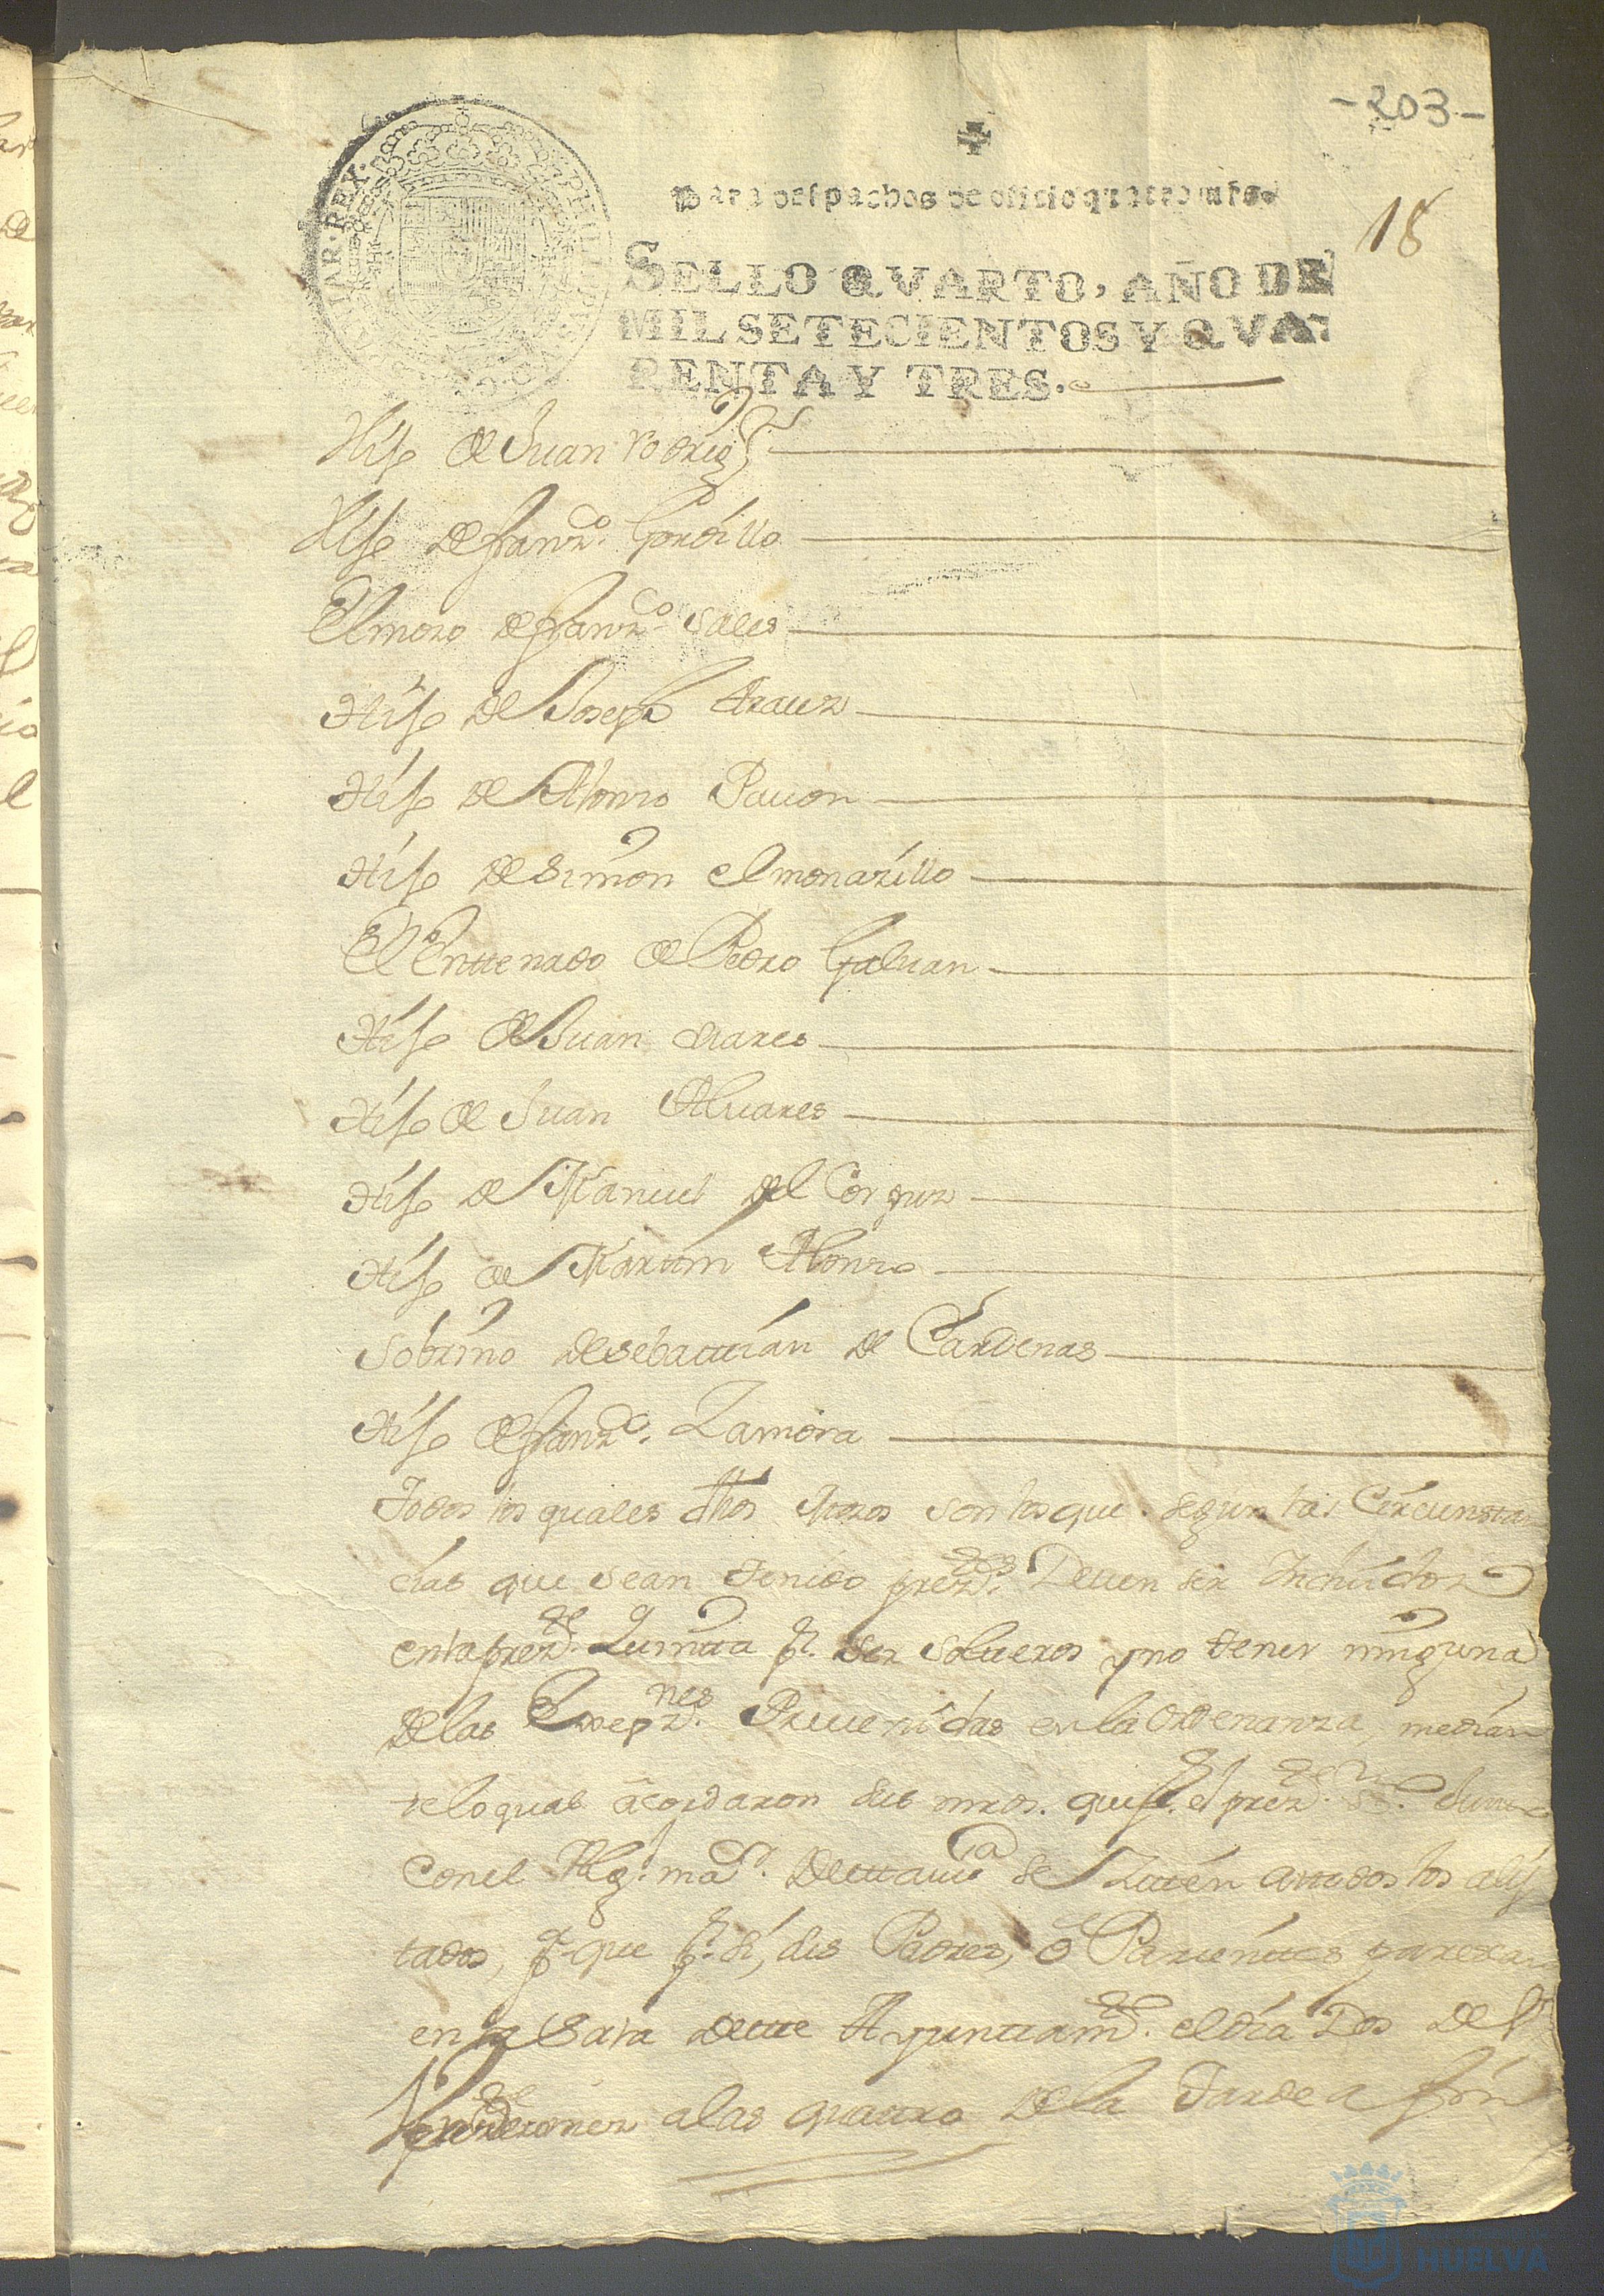 -203-
Para despachos de oficio quatro mrs.
18
SELLO QVARTO, AÑO DE
MIL SETECIENTOS Y QVA-
RENTA Y TRES.
Hijo de Juan rodrigz
Hijo de franzco. Gordillo
El mozo de franzco Sales
Hijo de Joseph Arauz
Hijo de Alonzo Pauon
Hijo de Simon el monarillo
El Enttenado de Pedro Galuan
Hijo de Juan Nares
Hijo de Juan Aluares
Hijo de Manuel del Corpuz
Hijo de Marttin Alonzo
Sobrino de sebasttian de Cardenas
Hijo de franzco. Zamora
Todos los quales dhos Mozos son los que segun las Circunstan
cias que sean tenido preztes. Deuen ser Incluidos
en la prezte. Quintta pr. ser Soltteros y no tener ninguna
de las Exsepznes. Preuenidas en la Ordenanza, median
te lo qual acordaron sus mrds. que pr. el prezte. ss.
con el Alg. mayr. desttauia se Zitten a ttodos los alis
tados, pa. que pr. si, sus Padres, o Parienttes paresca
en la Sala deste Ayunttamto. el dia Dos del
prezte mez a las quattro de la Tarde a fin
HUELVA